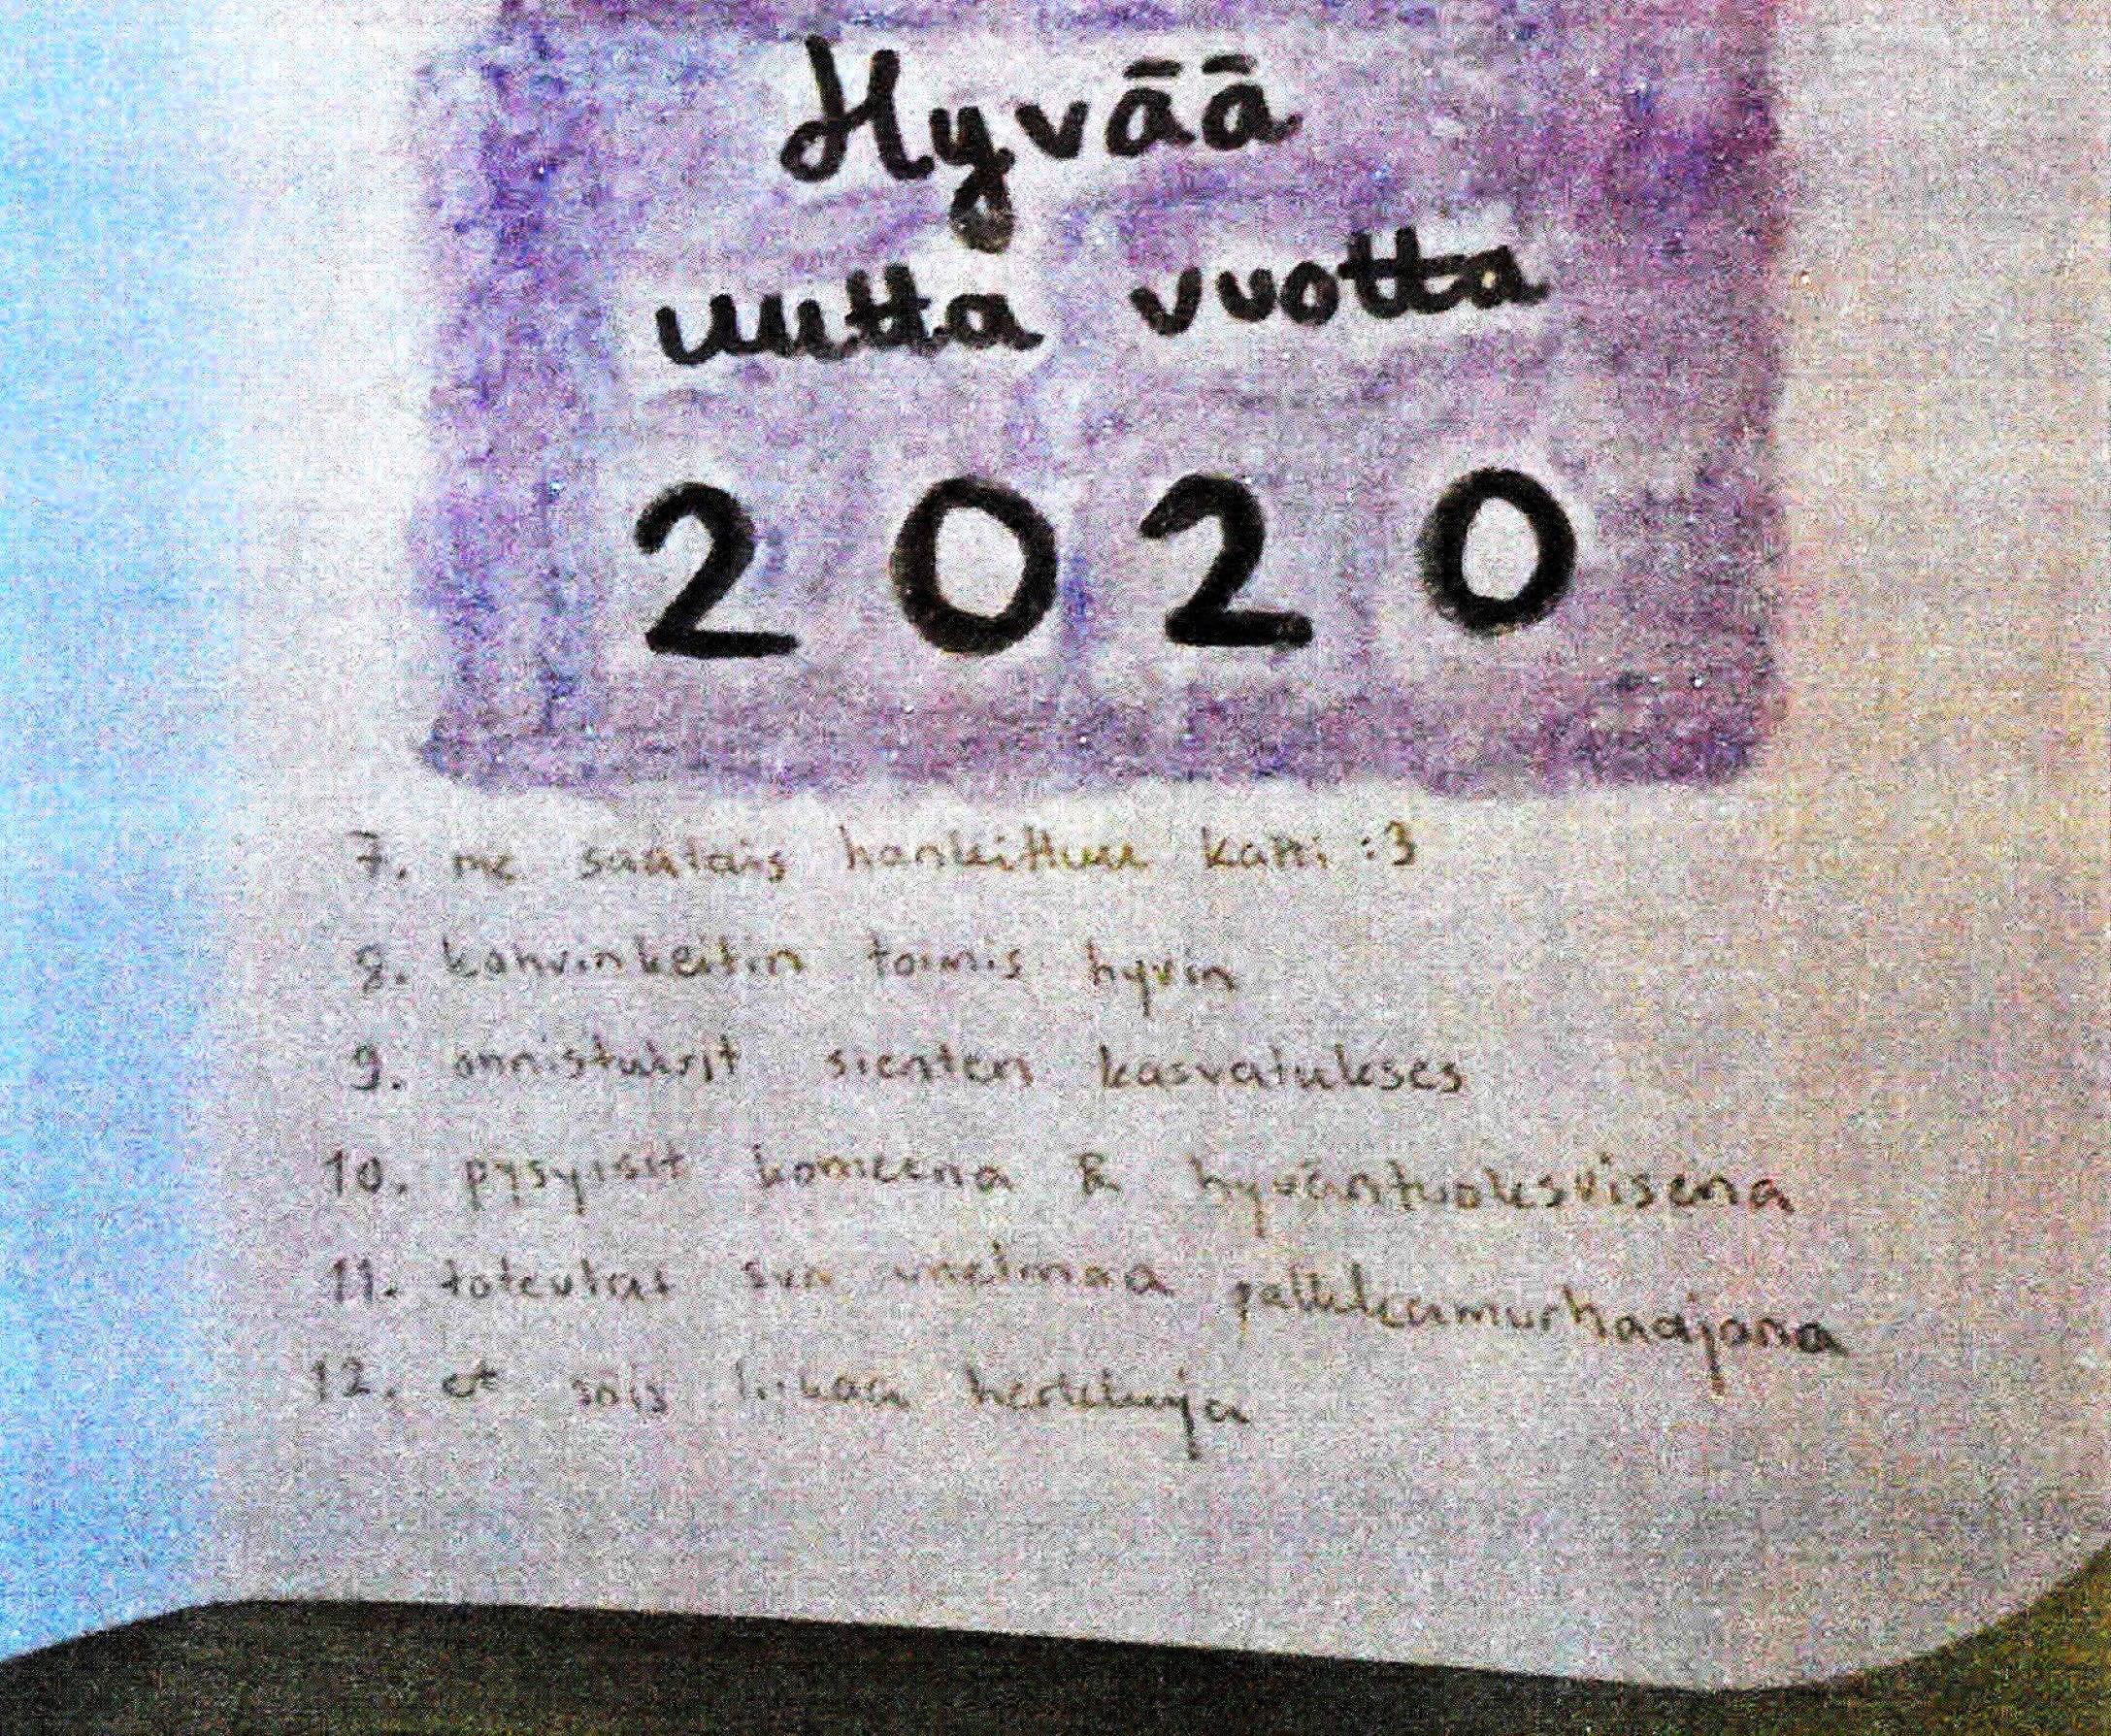 Hyvää
uutta vuotta
2020
7. me saatais hankittuu katti :3
8. kahvinkeitin toimis hyvin
9. onnistuisit sienten kasvatukses
10. pysyisit komeena & hyväntuoksuisena
11. toteutat sun unelmaa palkkamurhaajana
12. et söis liikaa herkkuja